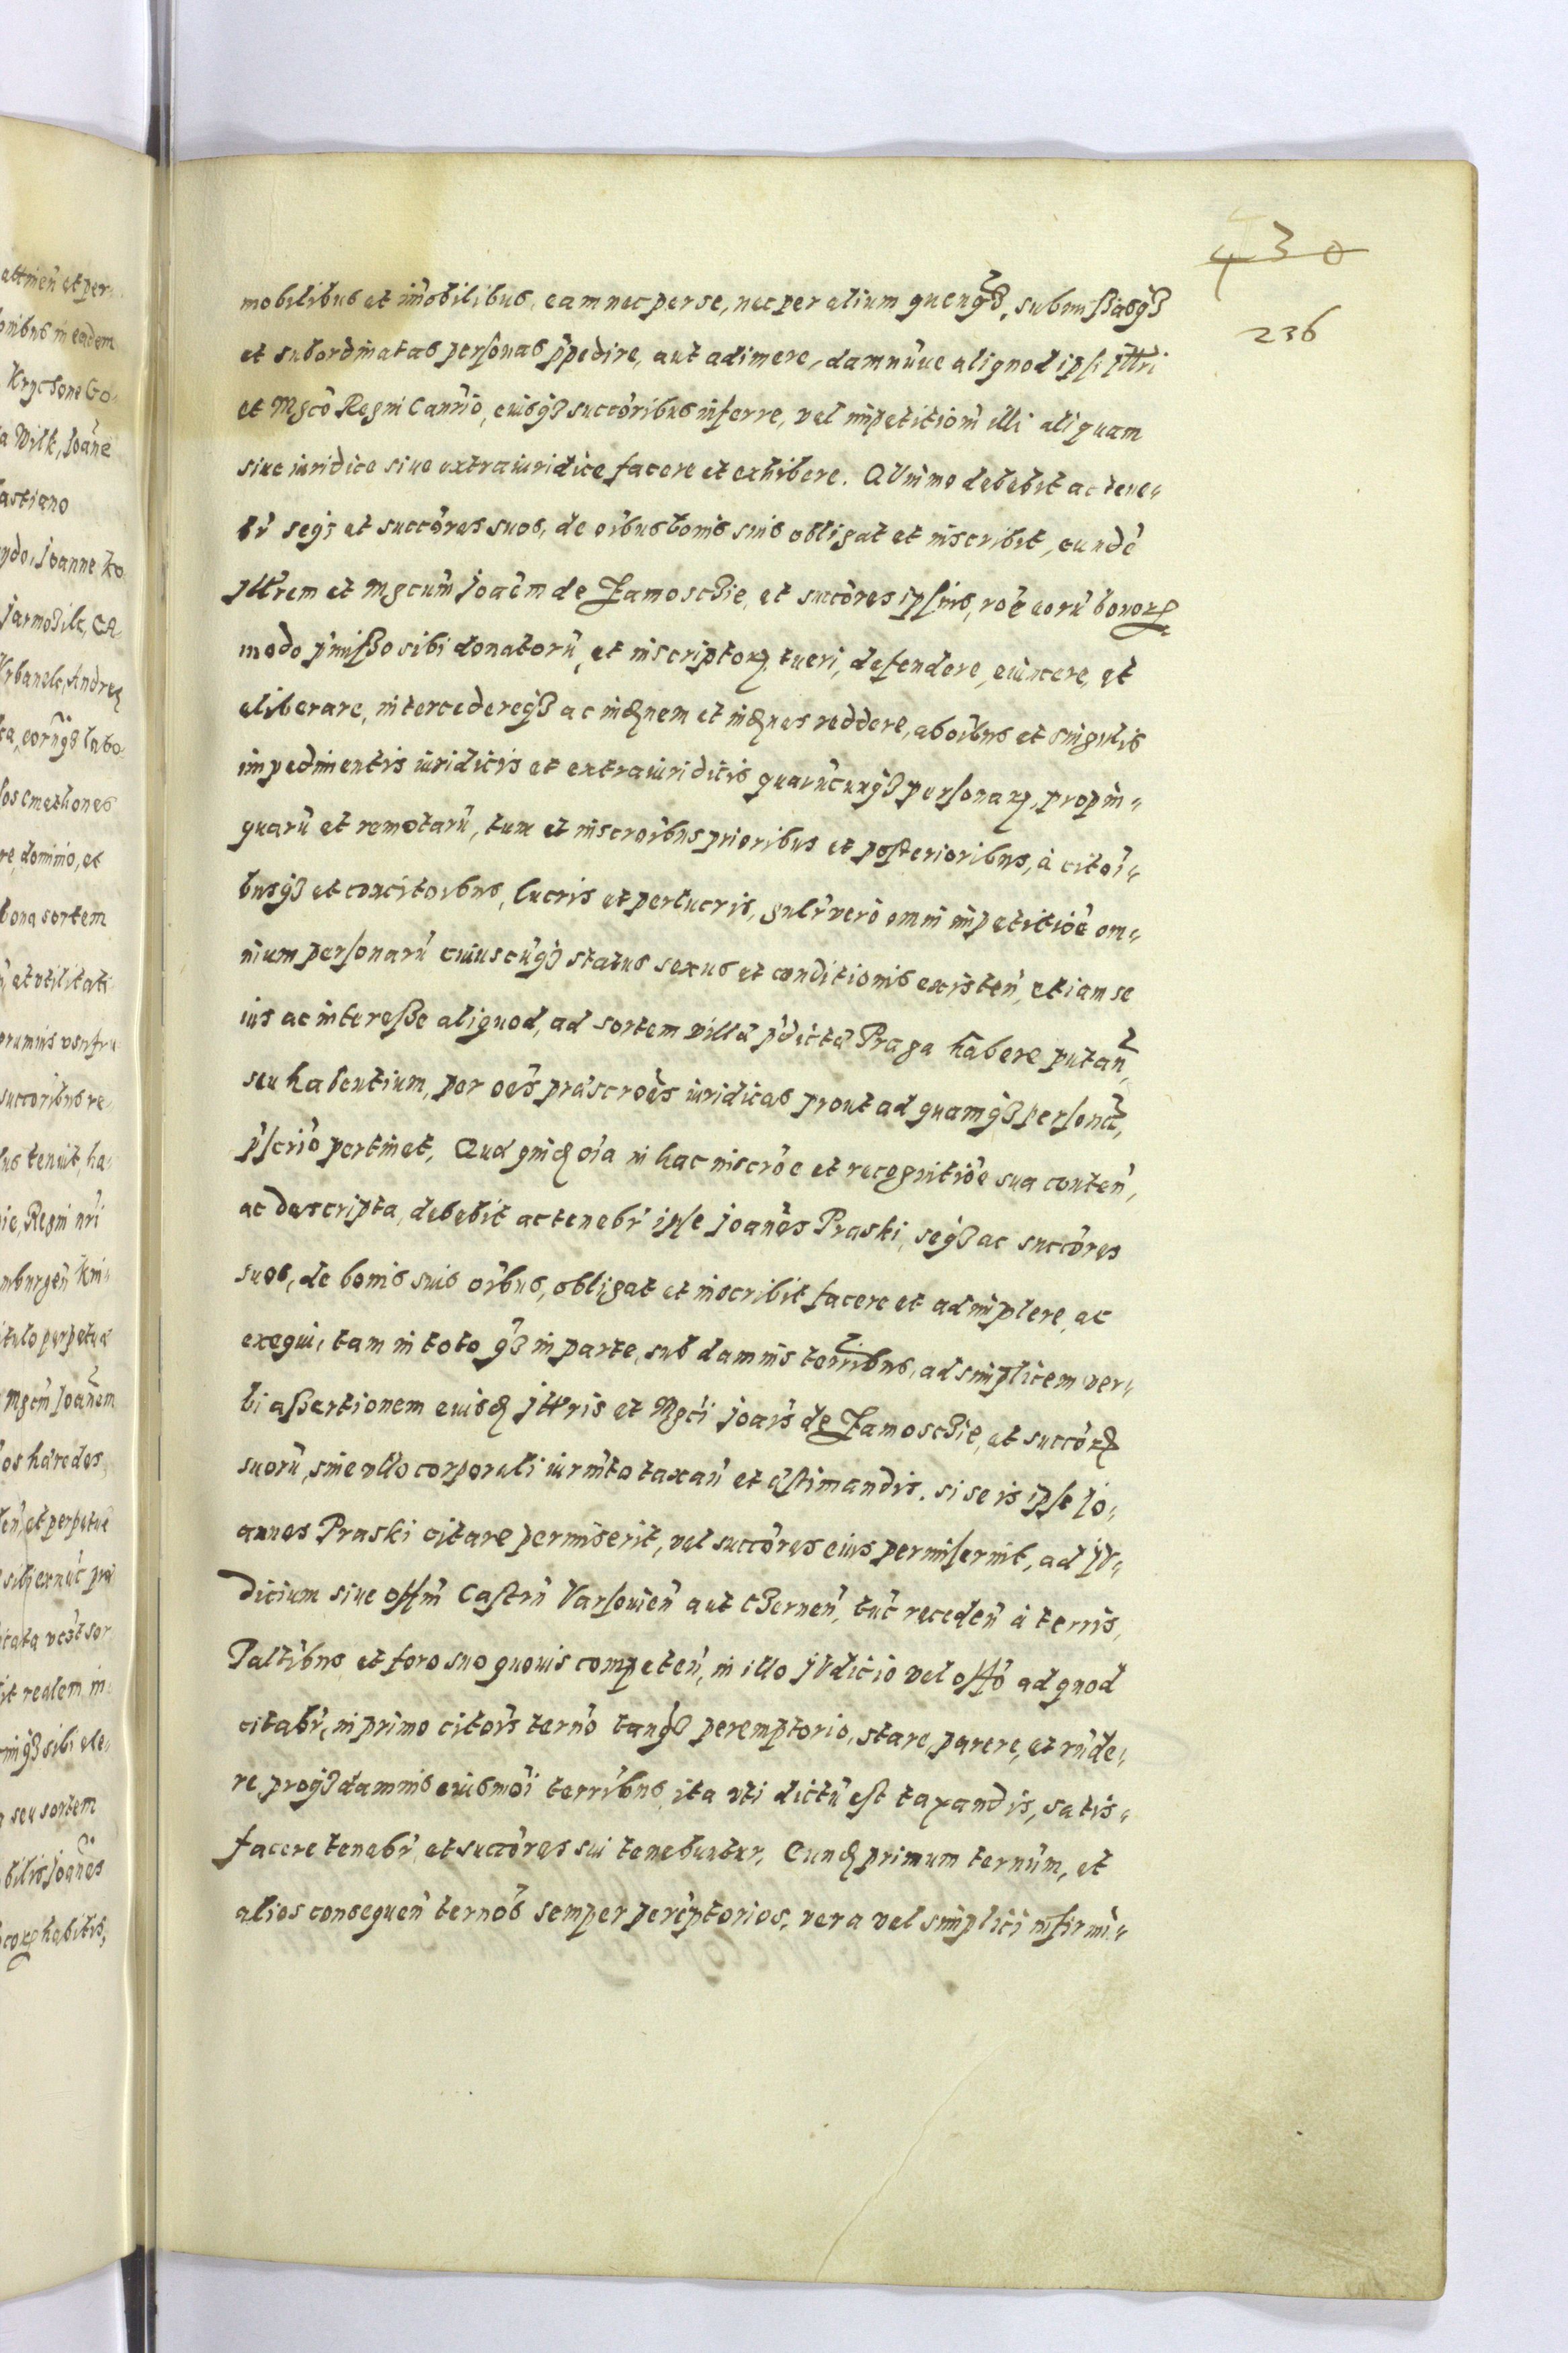 430
236
mobilibus et im̃obilibus, eam nec per se, nec per alium quenq̃ȝ, submißasqȝ
et subordinatas personas p̃pedire, aut adimere, damnũue aliquod ipsi Jllri
et Mgcõ Regni Canrĩo, eiusqȝ succõribus inferre, vel impetitionẽ illi aliquam
siue iuridice siue extraiuridice facere et exhibere. QVinimo debebit ac tene„
br̃ seqȝ et succõres suos, de oĩbus bonis suis obligat et inscribit, eundẽ
Jllrem et Mgcum̃ Joañem de Zamosczie, et succõres ipsius, roẽ eorũ bonoꝝ
modo p̃mißo sibi donatorũ, et inscriptoꝝ tueri, defendere, euincere, et
eliberare, intercedereqȝ ac indẽnem et indẽnes reddere, ab oĩbus et singulis
impedimentis iuridicis et extraiuridicis quarũcunqȝ personaꝝ, propin„
quarũ et remotarũ, tum et inscroĩbus prioribus et posterioribus, à citoĩ„
busqȝ et concitoĩbus, lucris et perlucris, gnlr̃ vero omni impetitioẽ om„
nium personarũ cuiuscũqȝ status sexus et conditionis existeñ, etiam se
ius ac intereße aliquod, ad sortem villæ p̃dictæ Praga habere putañ,
seu habentium, per oẽs præscroẽs iuridicas prout ad quamqȝ personã,
p̃scrĩo pertinet, Quæ quidẽ oĩa in hac inscroẽ et recognitioẽ sua conteñ,
ac descripta, debebit ac tenebr̃ ipse Joanẽs Praski, seqȝ ac succõres
suos, de bonis suis oĩbus, obligat et inscribit facere et adimplere, ac
exequi, tam in toto qȝ in parte, sub damnis terrĩbus, ad simplicem ver„
bi aßertionem eiusdẽ Jllris et Mgcĩ Joañis de Zamosczie, et succõꝝ
suorũ, sine vllo corporali iurmẽto taxañ et æstimandis. Si se is ipse Jo„
annes Praski citare permiserit, vel succõres eius permiserint, ad JV„
dicium siue offm̃ Castrñ Varsouieñ aut Czerneñ, tũc recedeñ à terris,
Paltĩbus, et foro suo quouis competeñ, in illo JVdicio vel offõ ad quod
citabr̃, in primo citoĩs termõ tanqȝ peremptorio, stare, parere, et rñde„
re, proqȝ damnis eiusmõi terrĩbus, ita vti dictũ est taxandis, satis„
facere tenebr̃ et succõres sui tenebuntur, Eundẽ primum terminũm, et
alios consequeñ termĩos semper perẽptorios, vera vel simplici infirmi„